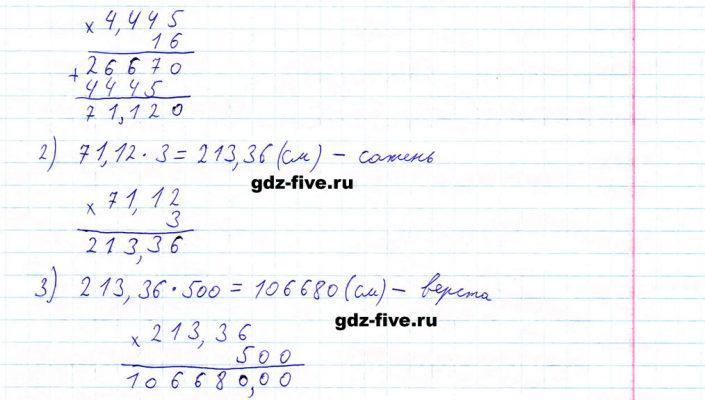 × 4,445
16
+ 26670
4445
71,120
2) 71,12 · 3 = 213,36 (см) – сажень
gdz-five.ru
× 71,12
3
213,36
3) 213,36 · 500 = 106680 (см) – верста
gdz-five.ru
× 213,36
500
106680,00